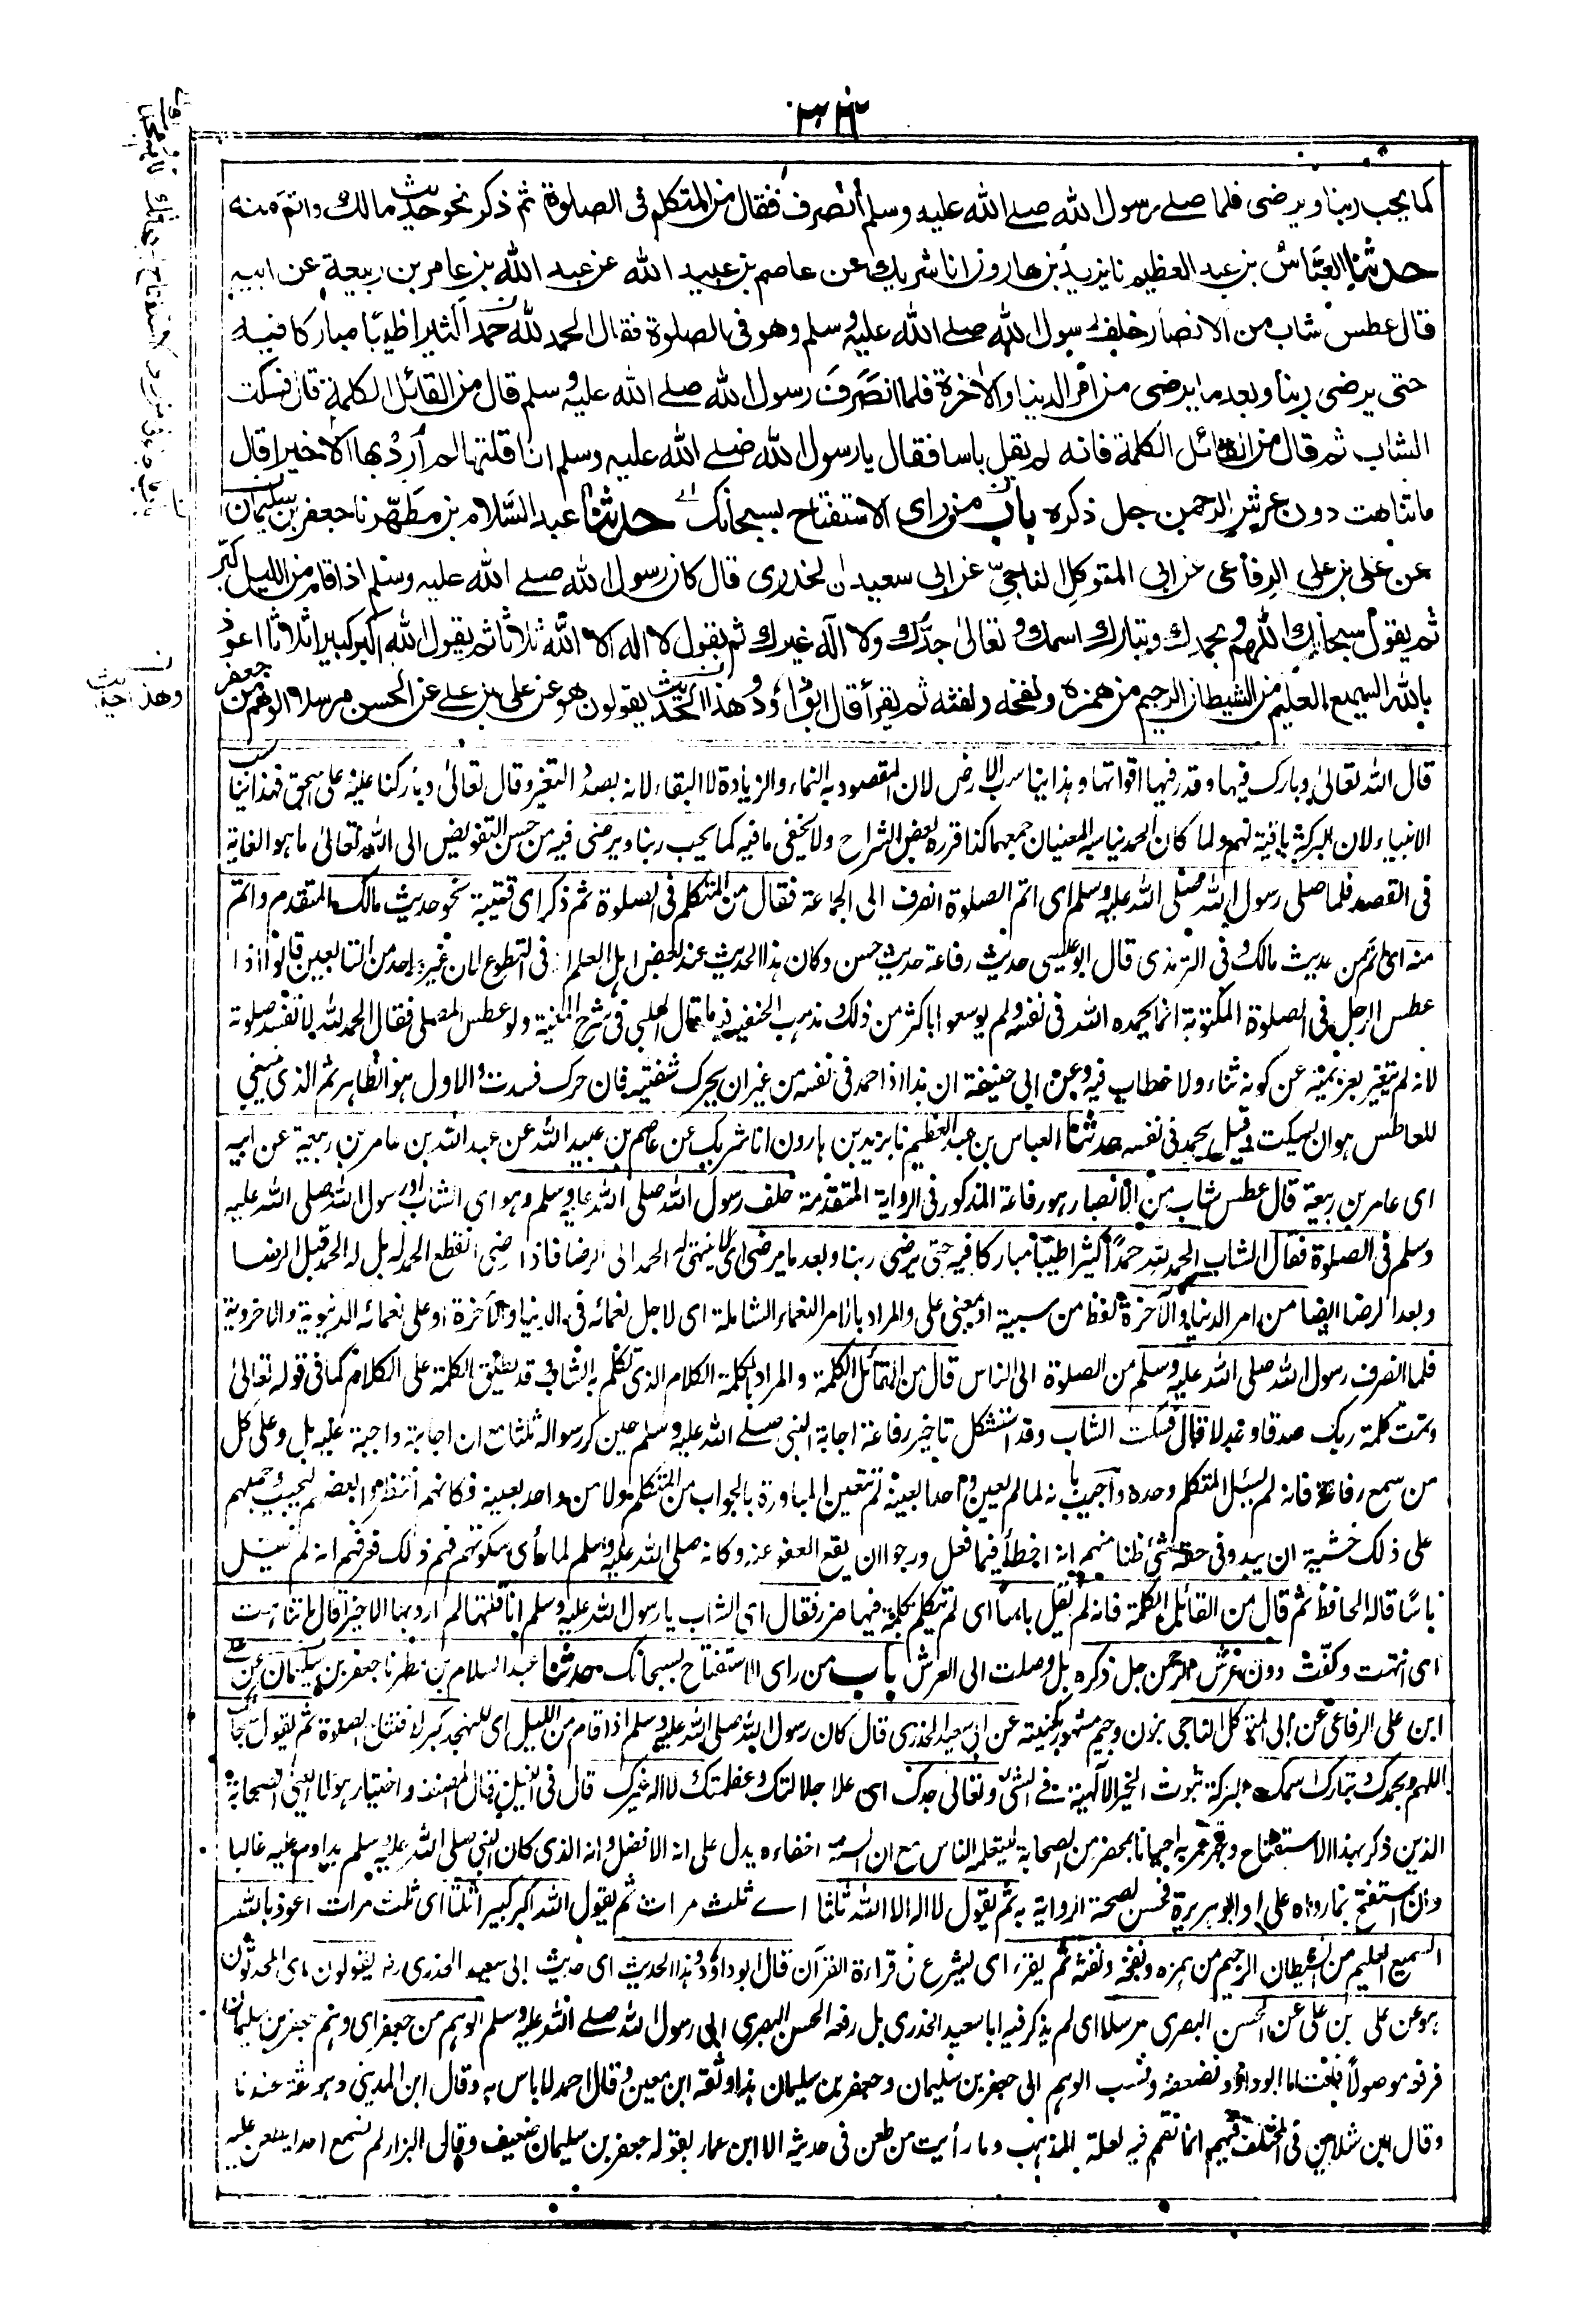 كما يحب ربنا ويرضى فلما صلى رسول الله صلى الله عليه وسلم انصرف فقال من المتكلم فى الصلوة ثم ذكر نحو حديث مالك واتم منه
حدثنا العباس بن عبد العظيم نا يزيد بن هارون انا شريك عن عاصم بن عبيد الله عن عبد الله بن عامر بن ربيعة عن ابيه
قال عطس شاب من الانصار خلف رسول الله صلى الله عليه وسلم وهو فى الصلوة فقال الحمد لله حمدا كثيرا طيبا مباركا فيه
حتى يرضى ربنا وبعد ما يرضى من امر الدنيا والاخرة فلما انصرف رسول الله صلى الله عليه وسلم قال من القائل الكلمة قال فسكت
الشاب ثم قال من القائل الكلمة فانه لم يقل باسا فقال يا رسول الله صلى الله عليه وسلم انا قلتها لم ارد بها الا خيرا قال
ما تناهت دون عرش الرحمن جل ذكره باب من راى الاستفتاح بسبحانك حدثنا عبد السلام بن مطهر نا جعفر بن سليمان
عن على بن على الرفاعى عن ابى المتوكل الناجى عن ابى سعيد الخدرى قال كان رسول الله صلى الله عليه وسلم اذا قام من الليل كبر
ثم يقول سبحانك اللهم وبحمدك وتبارك اسمك وتعالى جدك ولا اله غيرك ثم يقول لا اله الا الله ثلاثا ثم يقول الله اكبر كبيرا ثلاثا اعوذ
بالله السميع العليم من الشيطان الرجيم من همزه ونفخه ونفثه ثم يقرأ قال ابو داؤد وهذا الحديث يقولون هو عن على بن على عن الحسن مرسلا الوهم من جعفر
قال الله تعالى وبارك فيها وقدر فيها اقواتها وهذا يناسب الارض لان المقصود به النماء والزيادة لا البقاء لانه بصدد التغير وقال تعالى وباركنا عليه وعلى اسحق فهذا يناسب
الانبياء لان البركة باقية لهم ولما كان الحمد يناسبه المعنيان جمعهما كذا قرره بعض الشراح ولا يخفى ما فيه كما يحب ربنا ويرضى فيه من حسن التفويض الى الله تعالى ما هو الغاية
فى القصد فلما صلى رسول الله صلى الله عليه وسلم اى اتم الصلوة انصرف الى الجماعة فقال من المتكلم فى الصلوة ثم ذكر اى قتيبة نحو حديث مالك المتقدم واتم
منه اى اتم من حديث مالك وفى الترمذى قال ابو عيسى حديث رفاعة حديث حسن وكان هذا الحديث عند بعض اهل العلم انه فى التطوع لان غير واحد من التابعين قالوا اذا
عطس الرجل فى الصلوة المكتوبة انما يحمد الله فى نفسه ولم يوسعوا باكثر من ذلك ومذهب الحنفية فيه ما قال الحلبى فى شرح المنية ولو عطس المصلى فقال الحمد لله لا تفسد صلوته
لانه لم يتغير بعزيمته عن كونه ثناء ولا خطاب فيه وعن ابى حنيفة ان هذا اذا حمد فى نفسه من غير ان يحرك شفتيه فان حرك فسدت والاول هو الظاهر ثم الذى ينبغى
للعاطس هو ان يسكت وقيل يحمد فى نفسه حدثنا العباس بن عبد العظيم نا يزيد بن هارون انا شريك عن عاصم بن عبيد الله عن عبد الله بن عامر بن ربيعة عن ابيه
اى عامر بن ربيعة قال عطس شاب من الانصار هو رفاعة المذكور فى الرواية المتقدمة خلف رسول الله صلى الله عليه وسلم وهو اى الشاب او رسول الله صلى الله عليه
وسلم فى الصلوة فقال الشاب الحمد لله حمدا كثيرا طيبا مباركا فيه حتى يرضى ربنا وبعد ما يرضى اى لا ينتهى الحمد الى الرضا فاذا رضى انقطع الحمد له بل له الحمد قبل الرضا
وبعد الرضا ايضا من امر الدنيا والآخرة لفظ من سببية او بمعنى على والمراد بالامر النعماء الشاملة اى لاجل نعمائه فى الدنيا والآخرة او على نعمائه الدنيوية والاخروية
فلما انصرف رسول الله صلى الله عليه وسلم من الصلوة الى الناس قال من القائل الكلمة والمراد بالكلمة الكلام الذى تكلم به الشاب وقد يطلق الكلمة على الكلام كما فى قوله تعالى
وتمت كلمة ربك صدقا وعدلا قال فسكت الشاب وقد استشكل تاخير رفاعة اجابة النبى صلى الله عليه وسلم حين كرر سواله ثلثا مع ان اجابته واجبة عليه بل وعلى كل
من سمع رفاعة فانه لم يسئل المتكلم وحده واجيب بانه لما لم يعين واحدا بعينه لم تتعين المبادرة بالجواب من المتكلم ولا من واحد بعينه فكانهم انتظروا بعضهم ليجيب وحملهم
على ذلك خشية ان يبدو فى حقه شئ ظنا منهم انه اخطأ فيما فعل ورجوا ان يقع العفو عنه وكانه صلى الله عليه وسلم لما رأى سكوتهم فهم ذلك فعرفهم انه لم يقل
باسا قاله الحافظ ثم قال من القائل الكلمة فانه لم يقل باسا اى لم يتكلم بكلمة فيها ضرر فقال اى الشاب يا رسول الله صلى الله عليه وسلم انا قلتها لم ارد بها الا خيرا قال ما تناهت
اى انتهت وكفت دون عرش الرحمن جل ذكره بل وصلت الى العرش باب من راى الاستفتاح بسبحانك حدثنا عبد السلام بن مطهر نا جعفر بن سليمان عن على
ابن على الرفاعى عن ابى المتوكل الناجى بنون وجيم مشهور بكنيته عن ابى سعيد الخدرى قال كان رسول الله صلى الله عليه وسلم اذا قام من الليل اى للتهجد كبر لافتتاح الصلوة ثم يقول سبحانك
اللهم وبحمدك وتبارك اسمك البركة ثبوت الخير الالهية فى الشئ وتعالى جدك اى علا جلالتك وعظمتك لا اله غيرك قال فى النيل قال المصنف واختيار هؤلاء يعنى الصحابة
الذين ذكر بهذا الاستفتاح وجهر عمر به احيانا بمحضر من الصحابة ليتعلمه الناس مع ان السنة اخفاءه يدل على انه الافضل وانه الذى كان النبى صلى الله عليه وسلم يداوم عليه غالبا
وان استفتح بما رواه على او ابو هريرة فحسن لصحة الرواية به ثم يقول لا اله الا الله ثلثا اے ثلث مرات ثم يقول الله اكبر كبيرا ثلثا اى ثلث مرات اعوذ بالله
السميع العليم من الشيطان الرجيم من همزه ونفخه ونفثه ثم يقرء اى يشرع فى قراءة القرآن قال ابو داؤد وهذا الحديث اى حديث ابى سعيد الخدرى يقولون اى المحدثون
هو عن على بن على عن الحسن البصرى مرسلا اى لم يذكر فيه ابا سعيد الخدرى بل رفعه الحسن البصرى الى رسول الله صلى الله عليه وسلم الوهم من جعفر اى وهم جعفر بن سليمان
فرفعه موصولا قلت اما ابو داؤد فضعفه ونسب الوهم الى جعفر بن سليمان وجعفر بن سليمان هذا وثقه ابن معين وقال احمد لا باس به وقال ابن المدينى وهو ثقة عندنا
وقال ابن شاهين فى المختلف فيهم انما تكلم فيه لعلة المذهب وما رأيت من طعن فى حديثه الا ابن عمار بقوله جعفر بن سليمان ضعيف وقال البزار لم نسمع احدا يطعن عليه
وهذا حديث